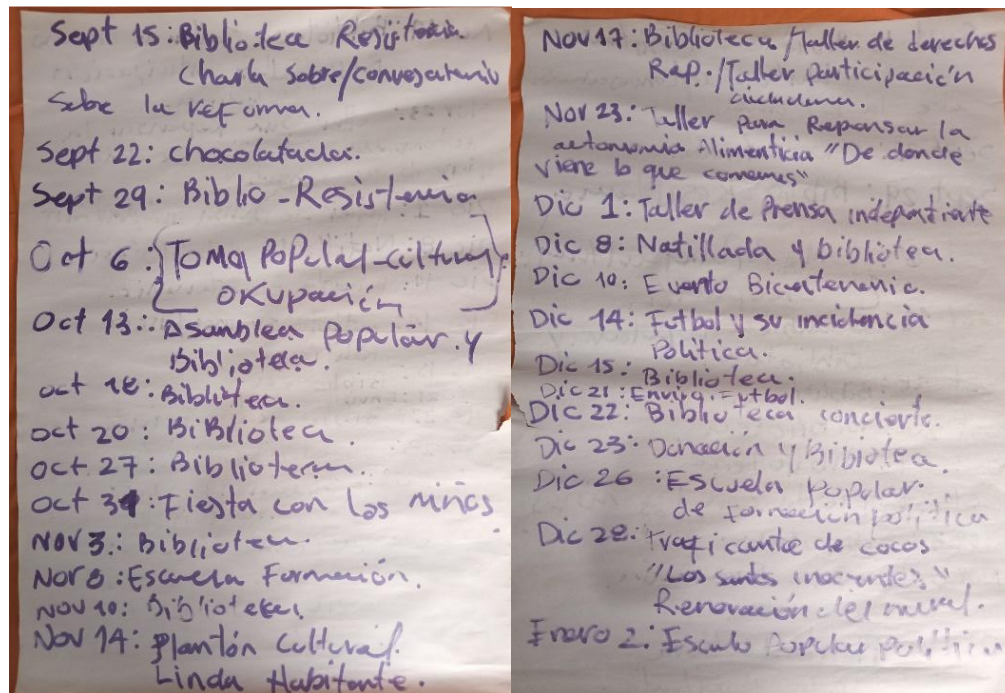 Sept 15: Biblioteca Resistencia
Charla sobre/conversatorio
sobre la reforma.
Sept 22: chocolatada.
Sept 29: Biblio-Resistencia
Oct 6: Toma Popular-cultural
okupación
Oct 13: Asamblea popular y
Biblioteca.
oct 18: Biblioteca.
oct 20: BiBlioteca.
oct 27: Biblioteca.
Oct 31: Fiesta con los niños
Nov 3: Biblioteca.
Nov 8: Escuela Formación.
Nov 10: Biblioteca.
Nov 14: Plantón Cultural.
Linda Habitante.
Nov 17: Biblioteca/Taller de derechos
Rap./Taller participación
ciudadana.
Nov 23: Taller para Repensar la
autonomia Alimenticia "De donde
viene lo que comemos"
Dic 1: Taller de Prensa
Dic 8: Natillada y biblioteca.
Dic 10: Evento Bicentenario.
Dic 14: Futbol y su incidencia
Política.
Dic 15: Biblioteca.
Dic 21: Futbol.
Dic 22: Biblioteca concierto.
Dic 23: Donación y Bibiotea.
Dic 26: Escuela popular
de formación política
Dic 28: Traficante de cocos
"Los santos inocentes"
Renovación del mural.
Enero 2: Escuela Popular política